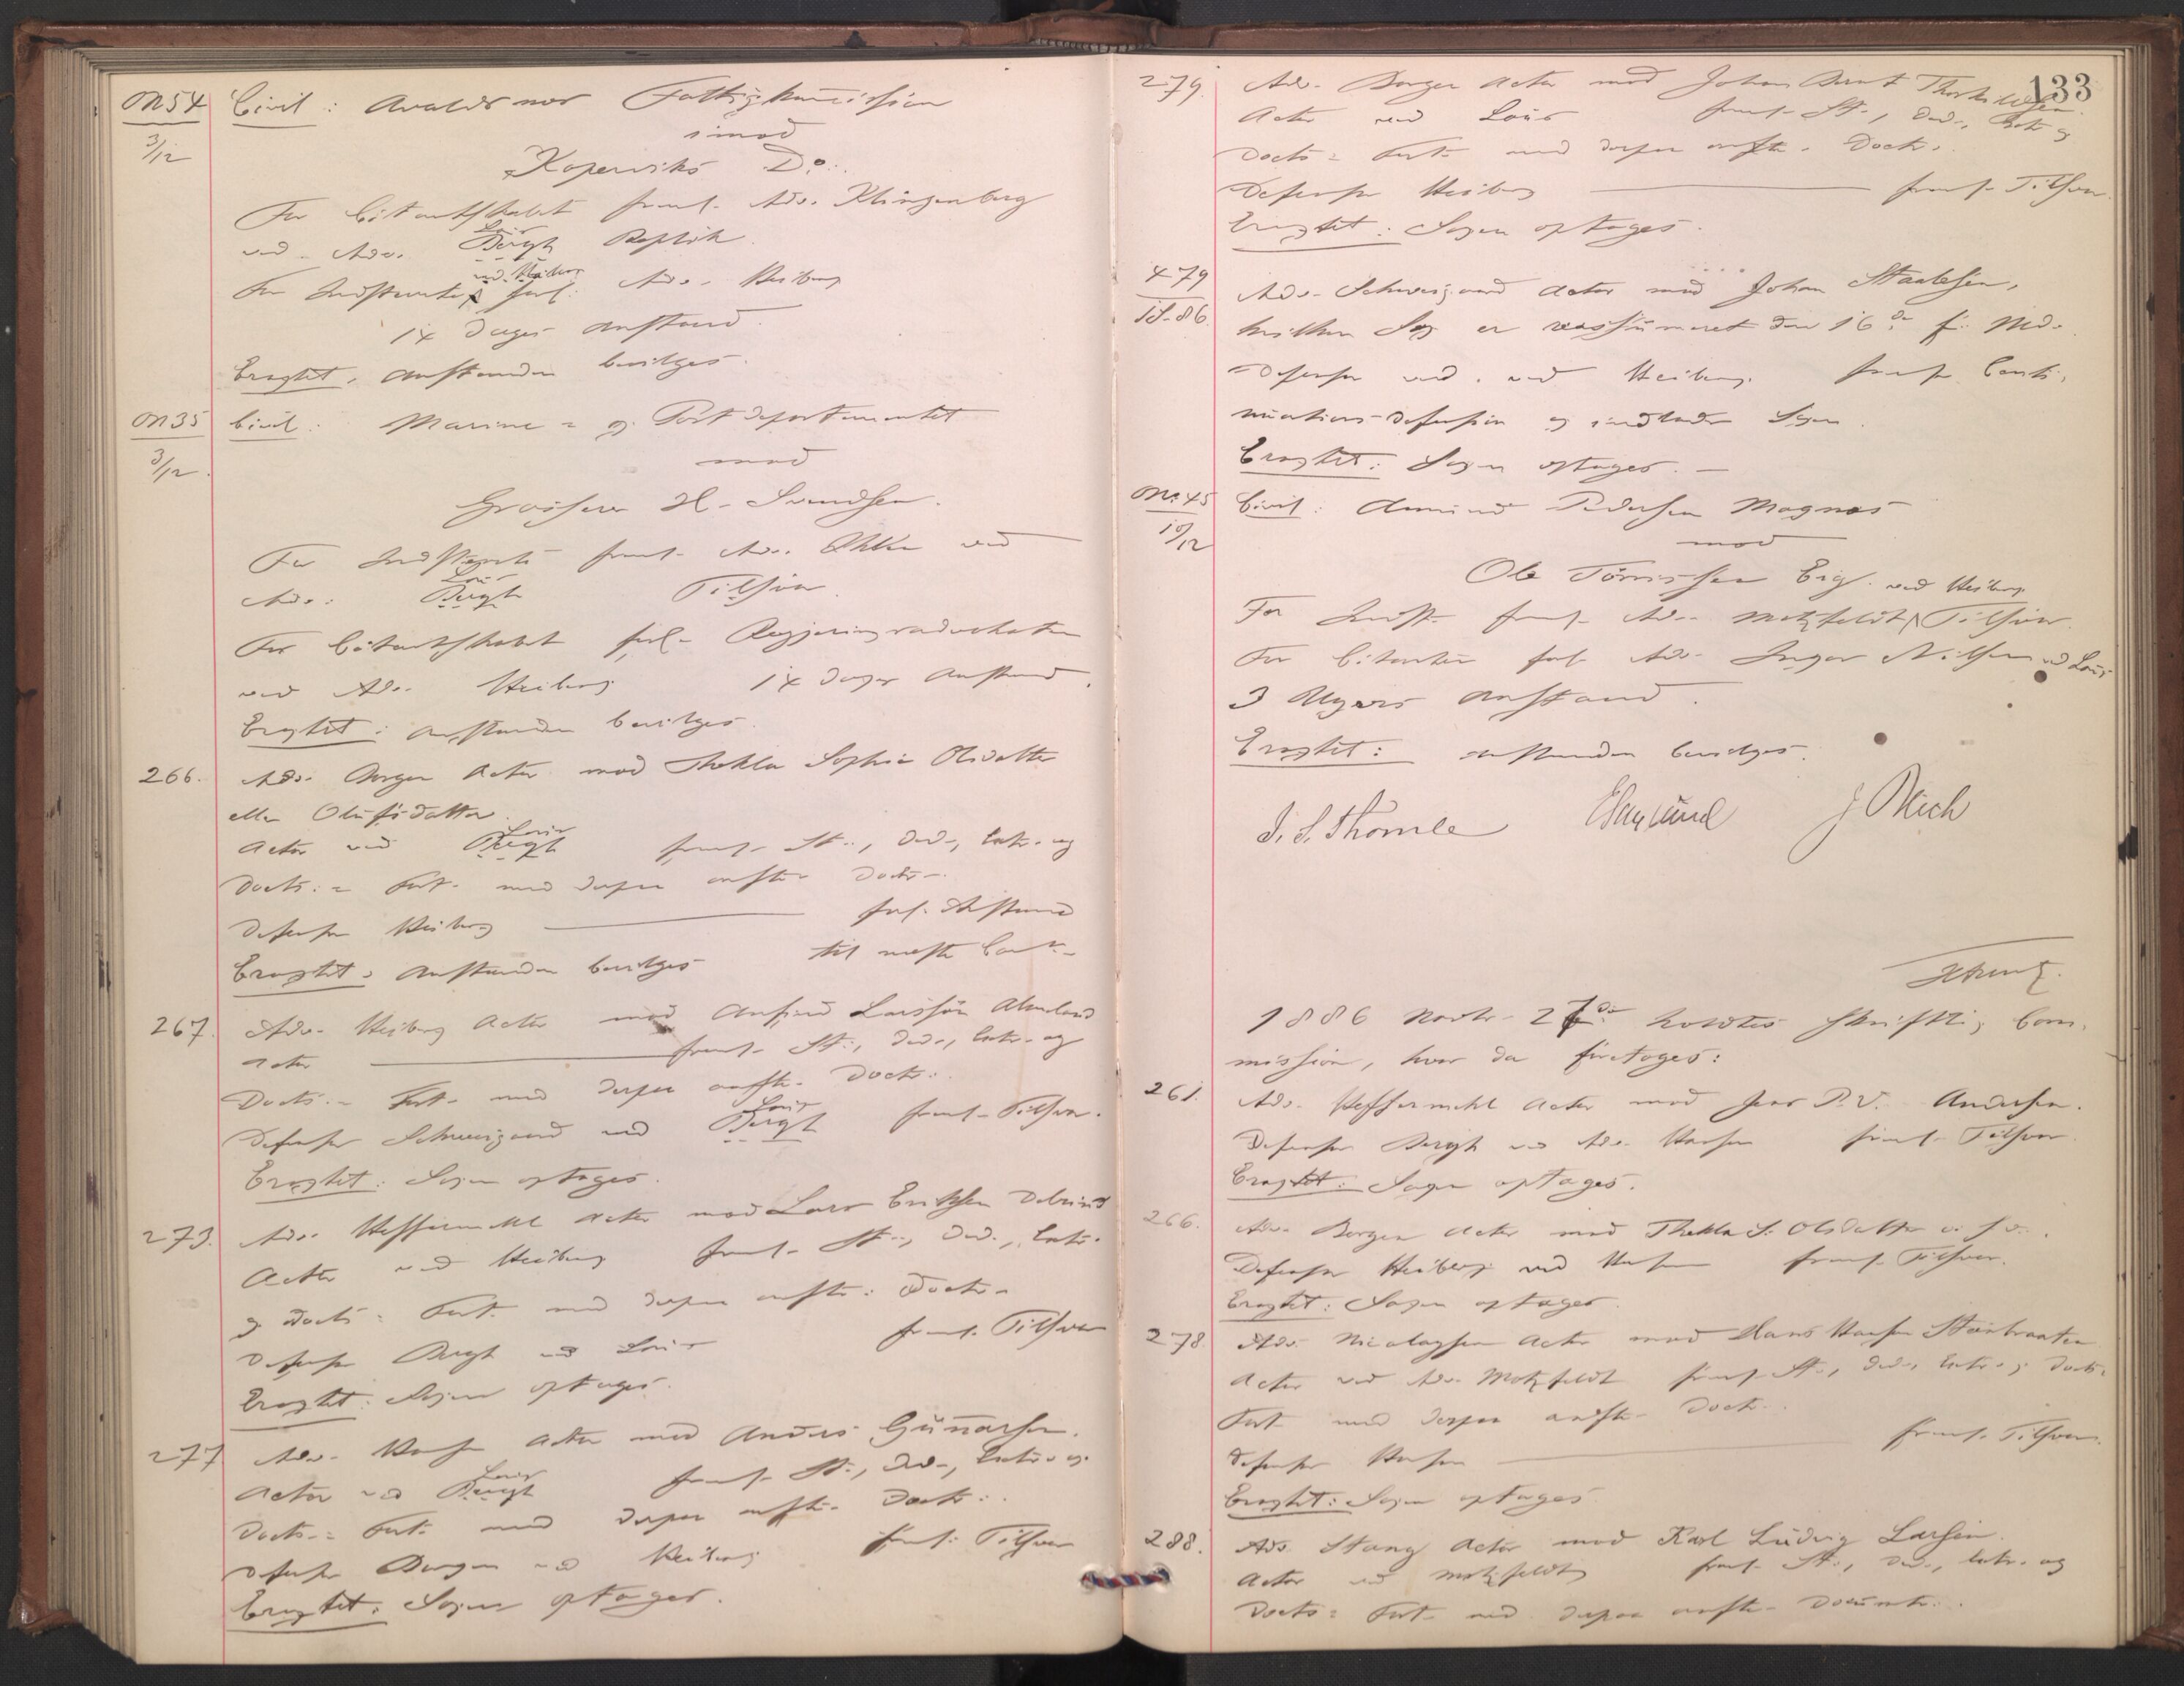 No 54 Civil: Avaldsnes Fattigkommission
3/12 imod
Koperviks Do:
For Citantskabet freml. Adv. Klingenberg
ved Adv. Bergh Louis Replik
For Indstevnte forl. Adv. Heiberg ved Heiberg
14 Dages Anstand.
Eragtet: Anstanden bevilges.
No 35 Civil: Marine- og Postdepartementet
3/12. mod
Grosserer H. Svendsen.
For Indstevnte freml. Adv. ved
Adv. Bergh Louis Tilsvar.
For Citantskabet forl. Regjeringsadvokaten
ved Adv. Heiberg 14 Dages Anstand.
Eragtet: Anstanden bevilges.
266. Adv. Borgen Actor mod Thekla Sophie Olsdatter
eller Olufsdatter.
Actor ved Bergh Louis freml. St., Ded., Extr. og
Docts.- Fort. med derpaa anftr. Doctr.
Defensor Heiberg — forl. Anstand
Eragtet: Anstanden bevilges til næste
267. Adv. Heiberg Actor mod Anfind Larssøn
Actor — freml. St., Ded., Extr. og
Docts.- Fort. med derpaa anftr. Doctr.
Defensor Schweigaard ved Bergh Louis freml. Tilsvar.
Eragtet: Sagen optages.
273. Adv. Heffermehl Actor mod Lars Eriksen
Actor ved Heiberg freml. St., Ded., Extr.
og Docts.- Fort. med derpaa anftr. Doctr.
Defensor Bergh ved Louis freml. Tilsvar
Eragtet: Sagen optages.
277 Adv. Actor mod Anders Gunnarsen.
Actor ved Bergh Louis freml. St., Ded., Extr. og
Docts.- Fort. med derpaa anftr. Doctr.
Defensor Borgen ved Heiberg freml. Tilsvar
Eragtet: Sagen optages.
133
279. Adv. Borgen Actor mod Johan Bernt Thorkildsen.
Actor ved Louis freml. St., Ded., Extr. og
Docts.- Fort. med derpaa anftr. Doctr.
Defensor Heiberg — freml. Tilsvar.
Eragtet: Sagen optages.
479 Adv. Schweigaard Actor mod Johan Staalesen,
hvilken Sag er reassumeret den 16de f. Md.
Defensor ved Heiberg freml. Conti-
nuations-Defension og indlader Sagen.
Eragtet: Sagen optages. —
No. 45 Civil: Pedersen Magnæs
10/12 mod
Ole Tönnessen Eig. ved Heiberg
For Indst. freml. Adv. Motzfeldt Tilsvar.
For Citanten forl. Adv. Inger Nilsen ved Louis
3 Ugers Anstand.
Eragtet: Anstanden bevilges.
I. S. Thomle J Rich
1886 Novbr. 27de holdtes skriftlig Com-
mission, hvor da foretoges:
261. Adv. Heffermehl Actor mod P. V. Andersen.
Defensor Bergh ved Adv. Hansen freml. Tilsvar.
Eragtet: Sagen optages.
266. Adv. Borgen Actor mod Thekla S. Olsdatter
Defensor Heiberg ved Hansen freml. Tilsvar.
Eragtet: Sagen optages.
278. Adv. Nicolaysen Actor mod Hans Hansen
Actor ved Adv. Motzfeldt freml. St., Ded., Extr. og Docts.
Fort. med derpaa anftr. Doctr.
Defensor Hansen — freml. Tilsvar.
Eragtet: Sagen optages.
288. Adv. Stang Actor mod Karl Ludvig Larsen.
Actor ved Motzfeldt freml. St., Ded., Extr. og
Docts.- Fort. med derpaa anftr. Documtr.